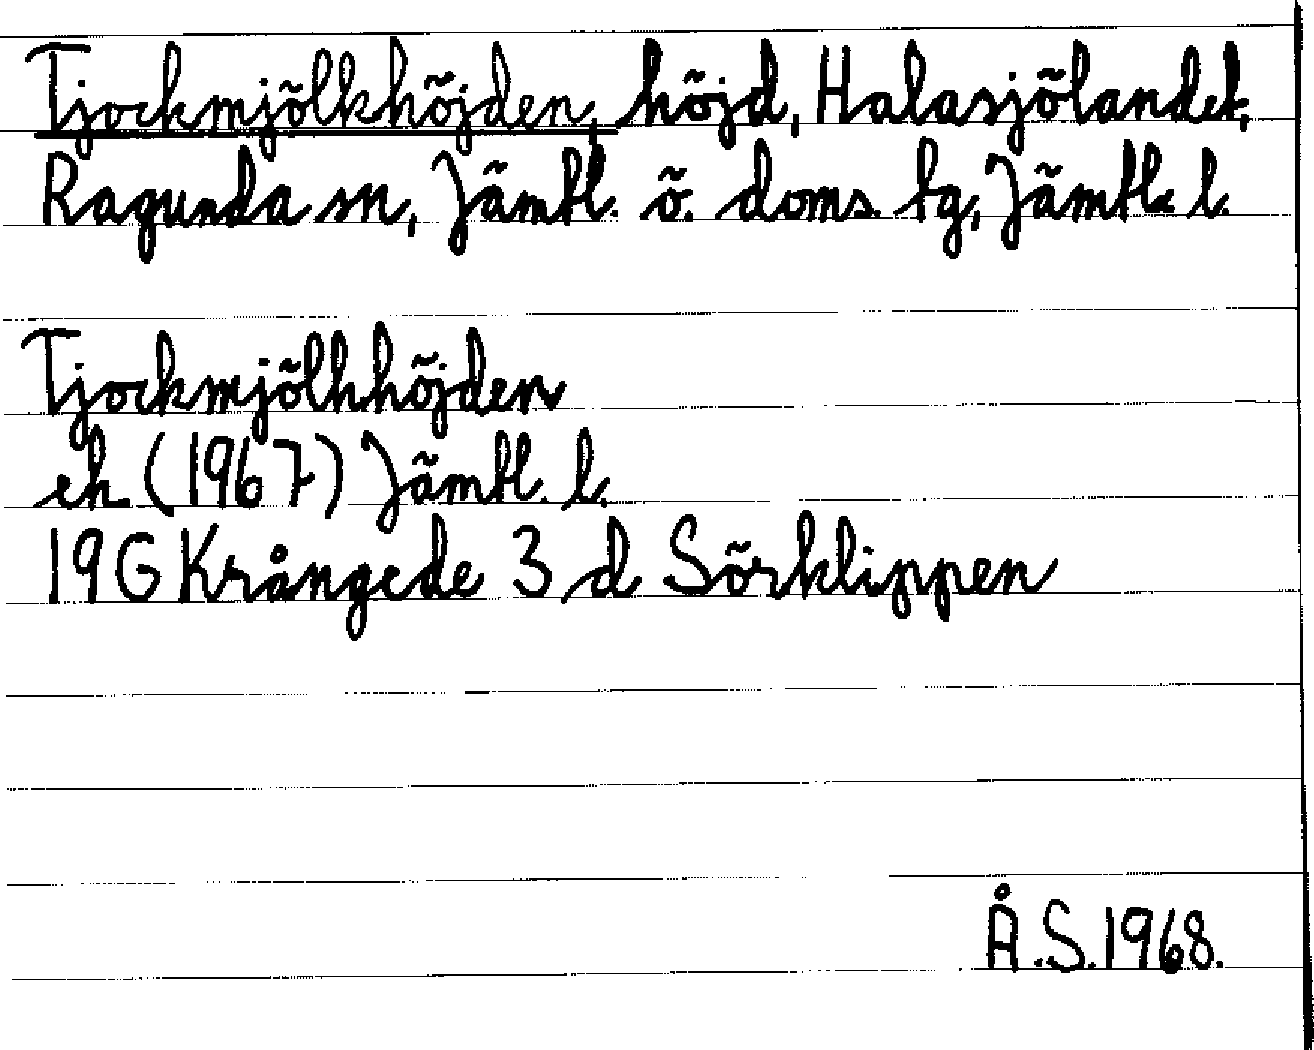 Tjockmjölkhöjden, höjd, Halasjölandet,
Ragunda sn, Jämtl. ö. doms. tg, Jämtl. l.
Tjockmjölkhöjden
ek (1967) Jämtl. l.
19G Krångede 3 d Sörklippen
Å.S. 1968.